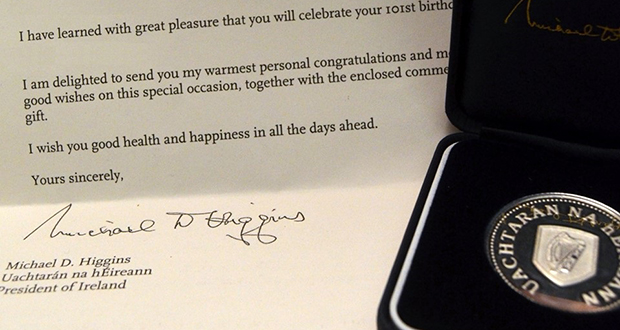 I have learned with great pleasure that you will celebrate your 101st
I am delighted to send you my warmest personal congratulations and
good wishes on this special occasion, together with the enclosed
gift.
I wish you good health and happiness in all the days ahead.
Yours sincerely,
Michael D Higgins
Michael D. Higgins
Uachtarán na hÉireann
President of Ireland
UACHTARÁN NA